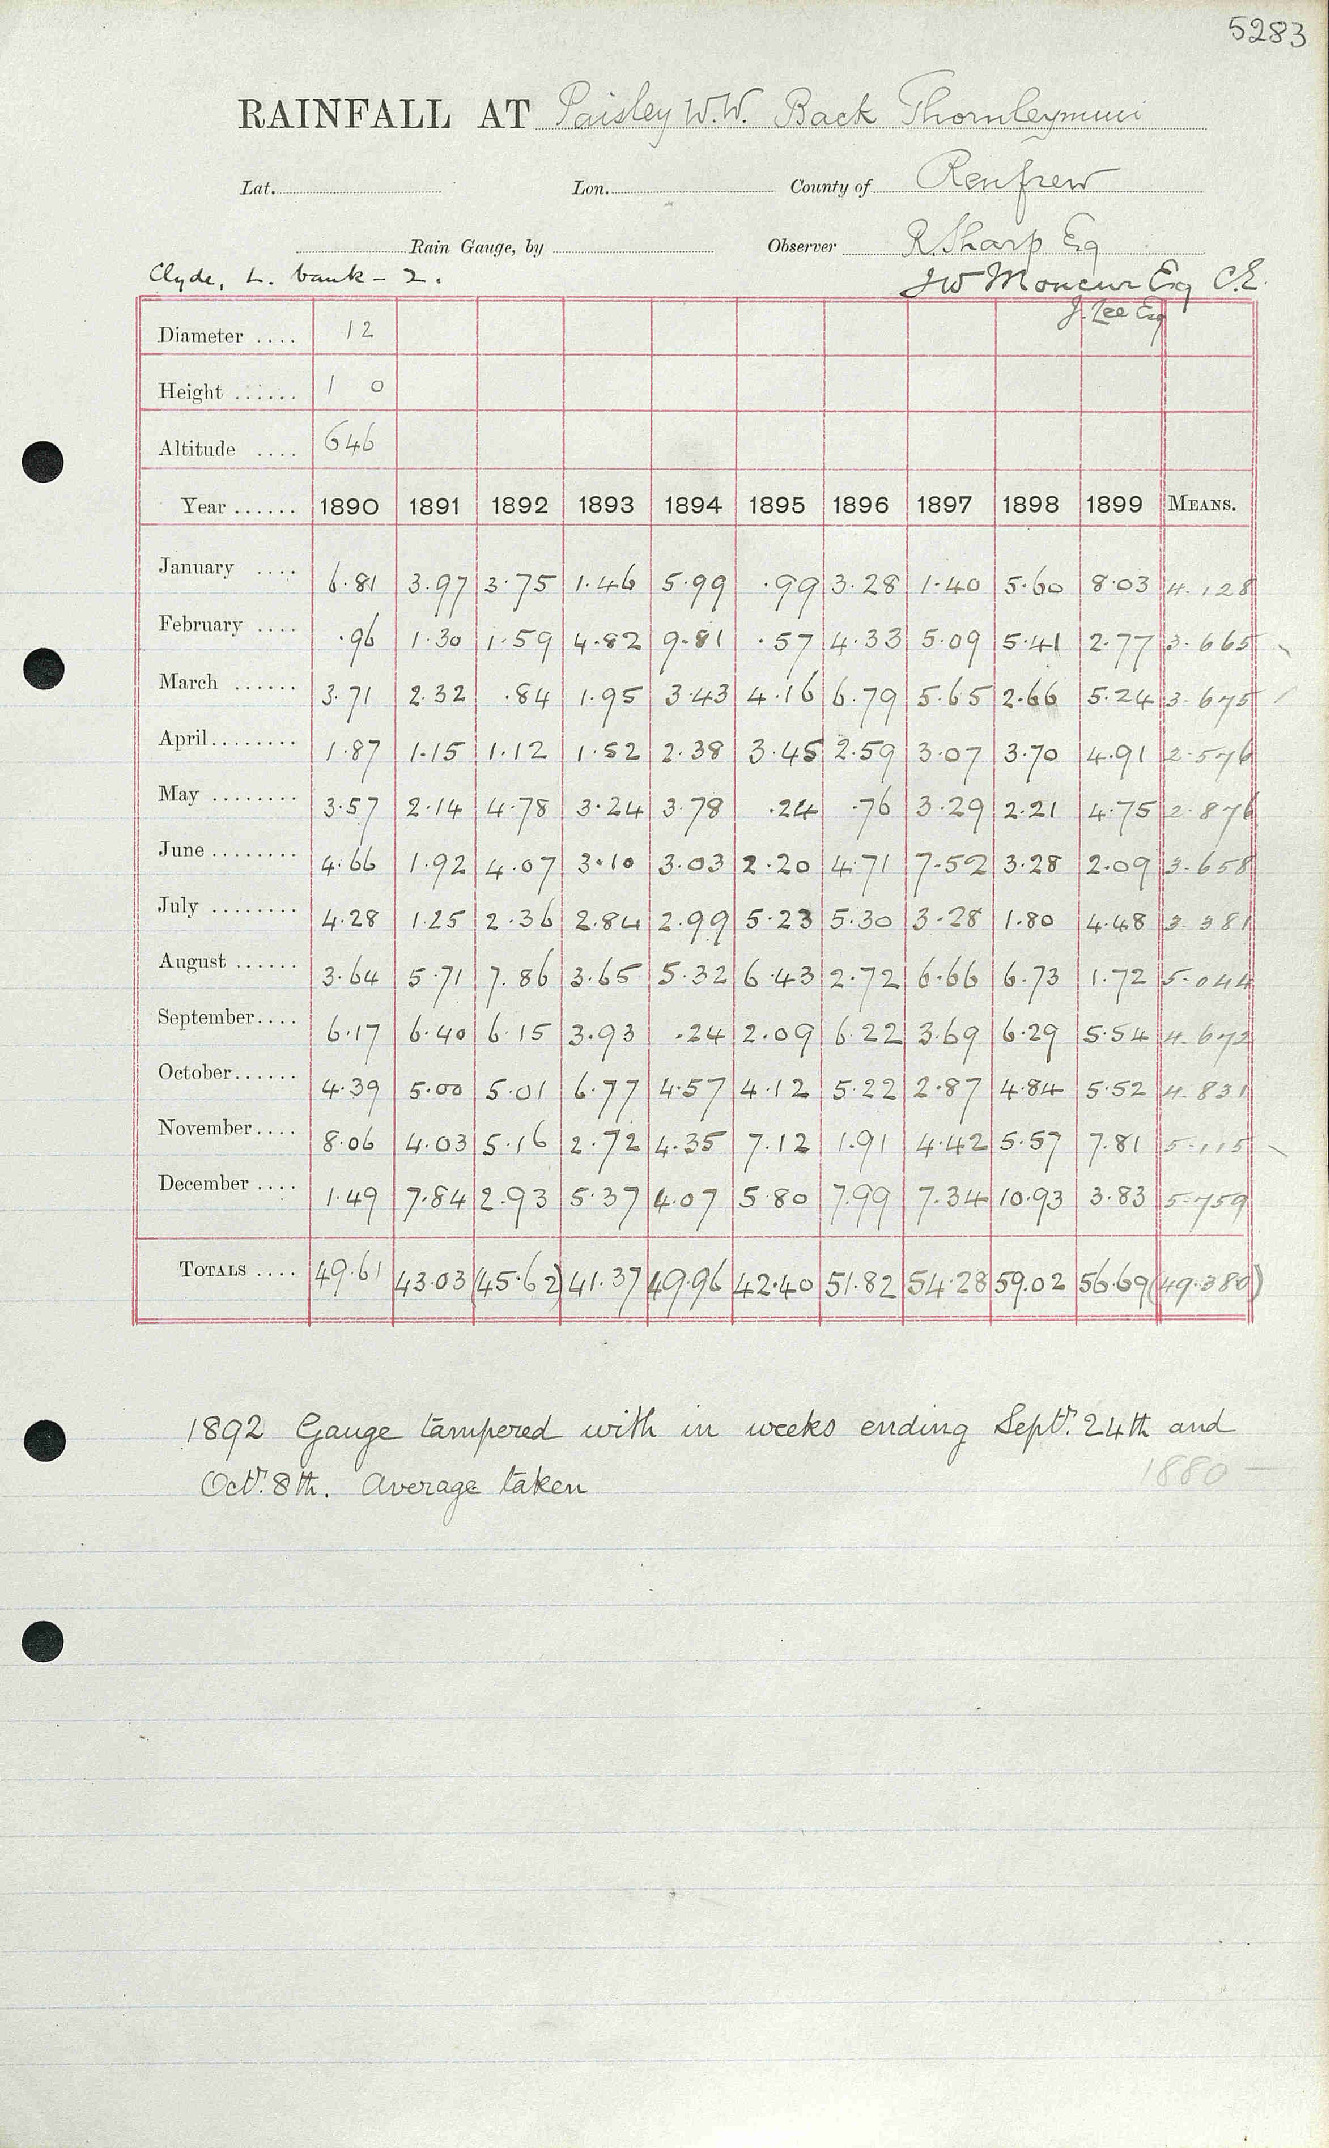 5283
RAINFALL AT Paisley W.W. Back Thornleymuir
Lat. Lon. County of Renfrew
Rain Gauge, by Observer R. Sharp Esq
Clyde, L. bank - 2. J W Moncur Esq C.E.
J. Lee Esq
Diameter .... 12
Height ...... 1 0
Altitude .... 646
Year ...... 1890 1891 1892 1893 1894 1895 1896 1897 1898 1899 MEANS.
January .... 6.81 3.97 3.75 1.46 5.99 .99 3.28 1.40 5.60 8.03 4.128
February .... .96 1.30 1.59 4.82 9.81 .57 4.33 5.09 5.41 2.77 3.665
March ...... 3.71 2.32 .84 1.95 3.43 4.16 6.79 5.65 2.66 5.24 3.675
April........ 1.87 1.15 1.12 1.52 2.38 3.45 2.59 3.07 3.70 4.91 2.576
May ........ 3.57 2.14 4.78 3.24 3.78 .24 .76 3.29 2.21 4.75 2.876
June ........ 4.66 1.92 4.07 3.10 3.03 2.20 4.71 7.52 3.28 2.09 3.658
July ........ 4.28 1.25 2.36 2.84 2.99 5.23 5.30 3.28 1.80 4.48 3.381
August ...... 3.64 5.71 7.86 3.65 5.32 6.43 2.72 6.66 6.73 1.72 5.044
September.... 6.17 6.40 6.15 3.93 .24 2.09 6.22 3.69 6.29 5.54 4.672
October...... 4.39 5.00 5.01 6.77 4.57 4.12 5.22 2.87 4.84 5.52 4.831
November.... 8.06 4.03 5.16 2.72 4.35 7.12 1.91 4.42 5.57 7.81 5.115
December .... 1.49 7.84 2.93 5.37 4.07 5.80 7.99 7.34 10.93 3.83 5.759
TOTALS .... 49.61 43.03 (45.62) 41.37 49.96 42.40 51.82 54.28 59.02 56.69 (49.380)
1892 Gauge tampered with in weeks ending Sept. 24th and
Oct. 8th. Average taken
1880 —